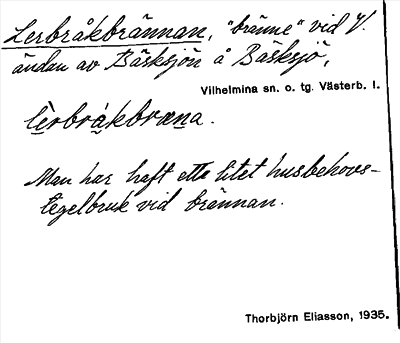 Lerbråkbrännan, "bränne" vid V.
ändan av Bäsksjön å Bäsksjö,
Vilhelmina sn. o. tg. Västerb. l.
lèrbråkbræna.
Man har haft ett litet husbehovs-
tegelbruk vid brännan.
Thorbjörn Eliasson, 1935.